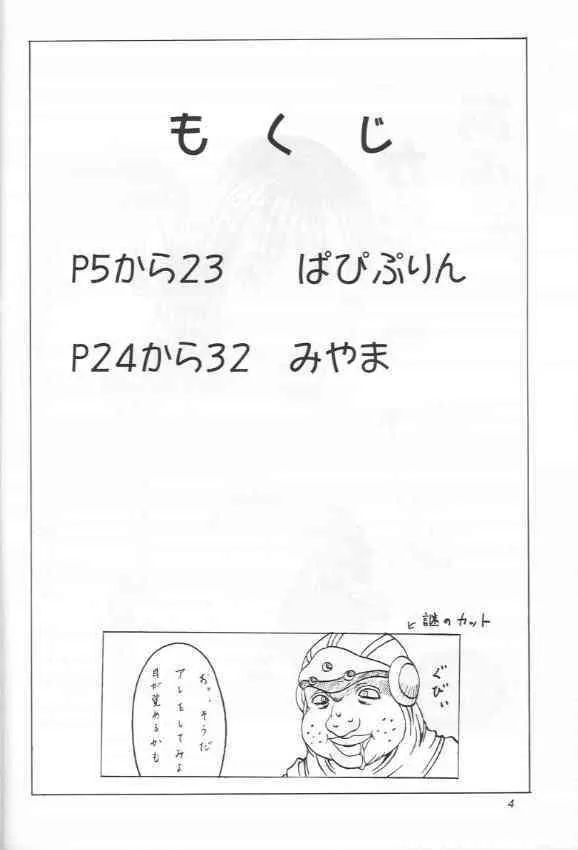 もくじ
P5から23　ぱぴぷりん
P24から32　みやま
謎のカット
ぐびぃ
おっ、そうだ
アレをしてみよ
目が覚めるかも
4